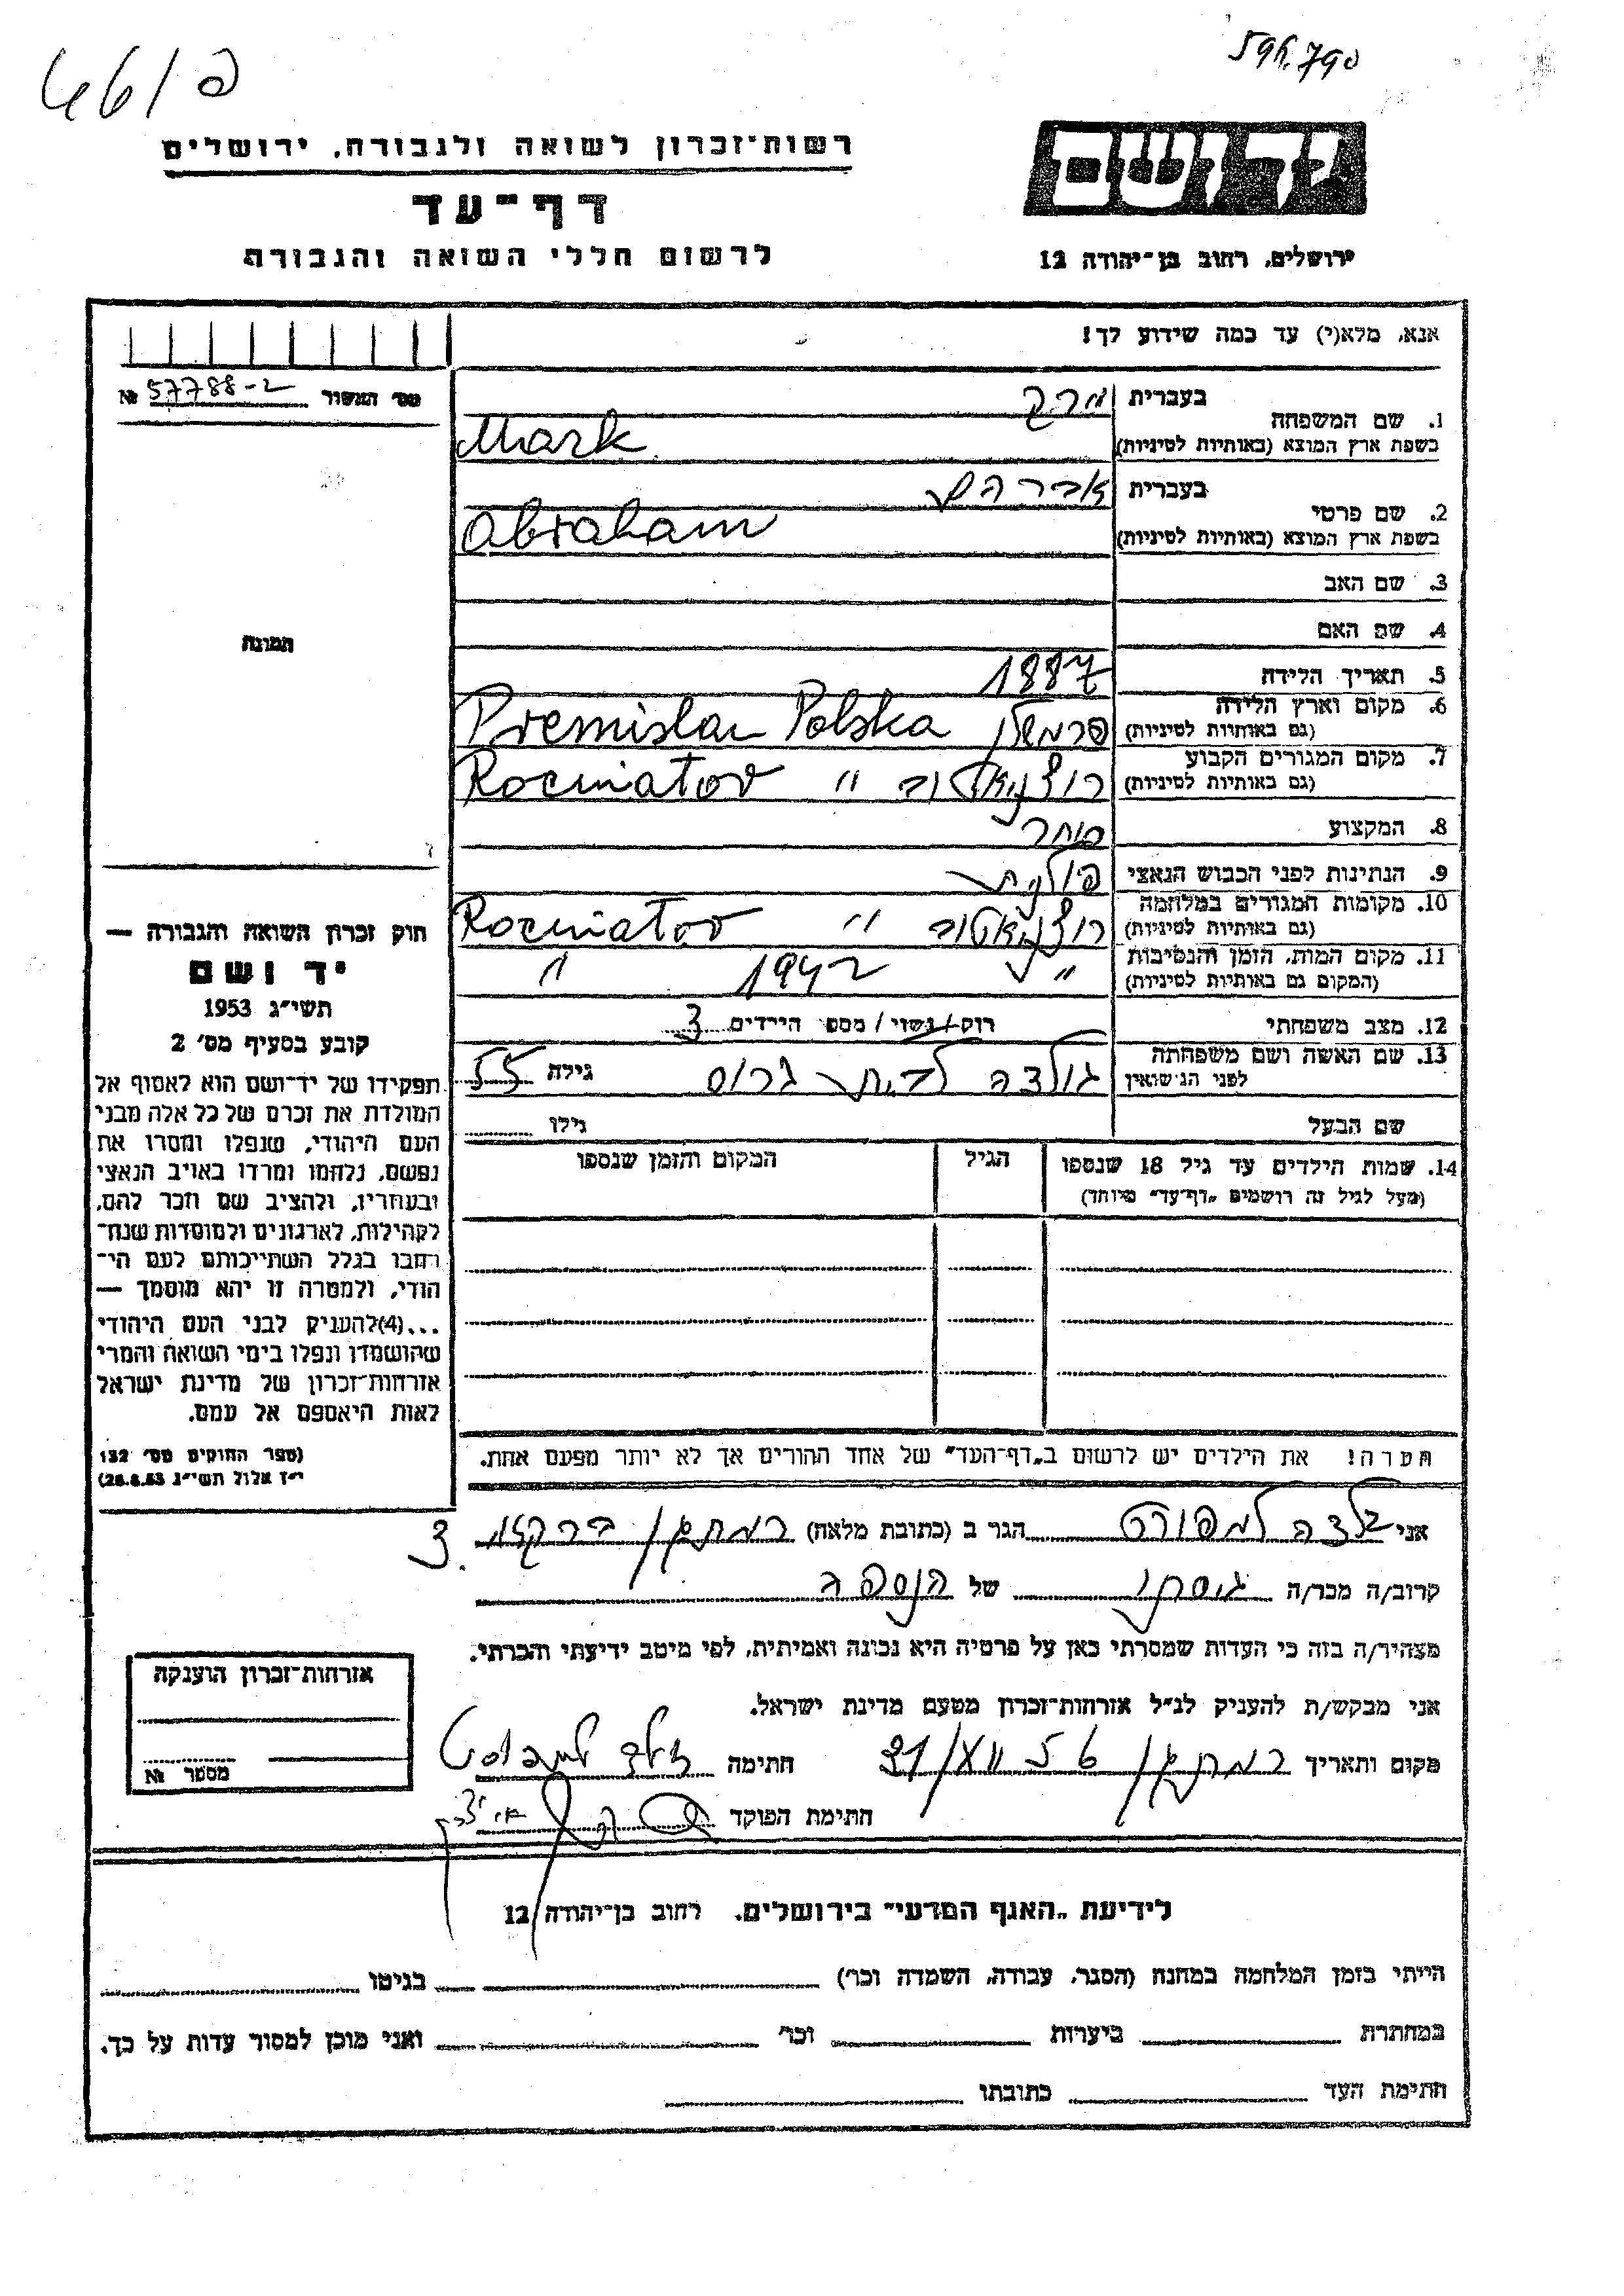 46/פ
596.790
רשות־זכרון לשואה ולגבורה, ירושלים
דף־עד
לרשום חללי השואה והגבורה
יד ושם
ירושלים, רחוב בן־יהודה 12
אנא, מלא(י) עד כמה שידוע לך!
מס׳ המשור № 57788-2
1. שם המשפחה בעברית מרק
בשפת ארץ המוצא (באותיות לטיניות) Mark
2. שם פרטי בעברית אברהם
בשפת ארץ המוצא (באותיות לטיניות) Abraham
3. שם האב
4. שם האם
תמונה
5. תאריך הלידה 1887
6. מקום וארץ הלידה
(גם באותיות לטיניות) פרמישלן Premislan Polska
7. מקום המגורים הקבוע
(גם באותיות לטיניות) רוזניאטוב " Rozniatov
8. המקצוע סוחר
9. הנתינות לפני הכבוש הנאצי פולנית
10. מקומות המגורים במלחמה
(גם באותיות לטיניות) רוזניאטוב " Rozniatov
11. מקום המות, הזמן והנסיבות
(המקום גם באותיות לטיניות) " 1942 "
12. מצב משפחתי רוק/נשוי/מספ הירדים 3
13. שם האשה ושם משפחתה
לפני הנישואין גולדה לבית גרוס גילה 55
שם הבעל גילו
14. שמות הילדים עד גיל 18 שנספו
(מעל לגיל זה רושמים „דף־עד” מיוחד)
הגיל
המקום והזמן שנספו
חוק זכרון השואה והגבורה —
יד ושם
תשי״ג 1953
קובע בסעיף מס׳ 2
תפקידו של יד־ושם הוא לאסוף אל
המולדת את זכרם של כל אלה מבני
העם היהודי, שנפלו ומסרו את
נפשם, נלחמו ומרדו באויב הנאצי
ובעוזריו, ולהציב שם וזכר להם,
לקהילות, לארגונים ולמוסדות שנח־
רבו בגלל השתייכותם לעם הי־
הודי, ולמטרה זו יהא מוסמך —
...(4)להעניק לבני העם היהודי
שהושמדו ונפלו בימי השואה והמרי
אזרחות־זכרון של מדינת ישראל
לאות היאספם אל עמם.
(ספר החוקים מס׳ 132
י״ז אלול תשי״ג 28.8.53)
הערה! את הילדים יש לרשום ב„דף־העד” של אחד ההורים אך לא יותר מפעם אחת.
אני זלדה למפורט הגר ב (כתובת מלאה) רמת גן/ ברקאי 3.
קרוב/ה מכר/ה גיסתו של הנספה
מצהיר/ה בזה כי העדות שמסרתי כאן על פרטיה היא נכונה ואמיתית, לפי מיטב ידיעתי והכרתי.
אני מבקש/ת להעניק לנ״ל אזרחות־זכרון מטעם מדינת ישראל.
מקום ותאריך רמת גן/ חתימה זלדה למפורט
חתימת הפוקד
אזרחות־זכרון הוענקה
מספר №
לידיעת „האגף המדעי” בירושלים, רחוב בן־יהודה 12
הייתי בזמן המלחמה במחנה (הסגר, עבודה, השמדה וכר׳) בגיטו
במחתרת ביערות וכר׳ ואני מוכן למסור עדות על כך.
חתימת העד כתובתו